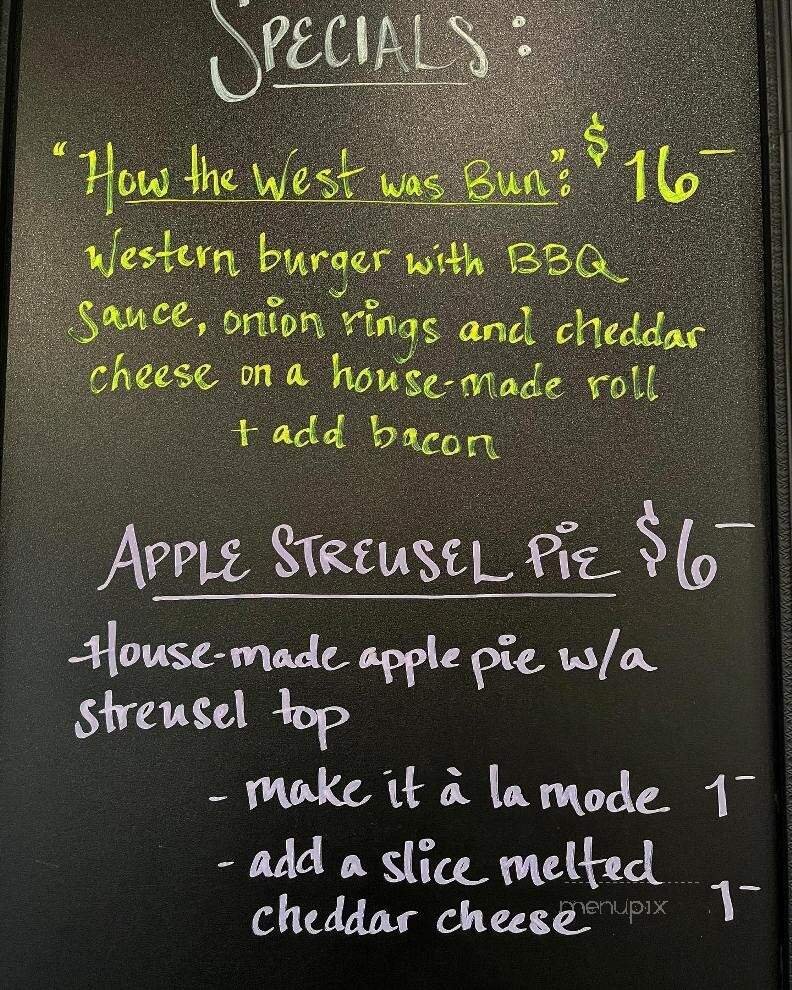 SPECIALS:
"How the West was Bun": $16-
Western burger with BBQ
sauce, onion rings and cheddar
cheese on a house-made roll
+ add bacon
APPLE STREUSEL PIE $6-
House-made apple pie w/a
streusel top
- make it à la mode 1-
- add a slice melted
cheddar cheese 1-
menupix